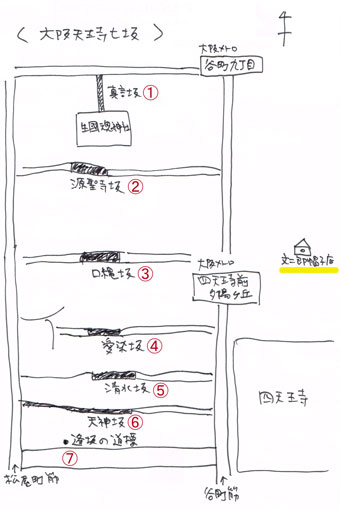 〈 大阪天王寺七坂 〉
大阪メトロ
谷町九丁目
真言坂 ①
生國魂神社
源聖寺坂 ②
口縄坂 ③
大阪メトロ
四天王寺前
夕陽ヶ丘
愛染坂 ④
清水坂 ⑤
四天王寺
天神坂 ⑥
・逢坂の道標
⑦
松屋町筋
谷町筋